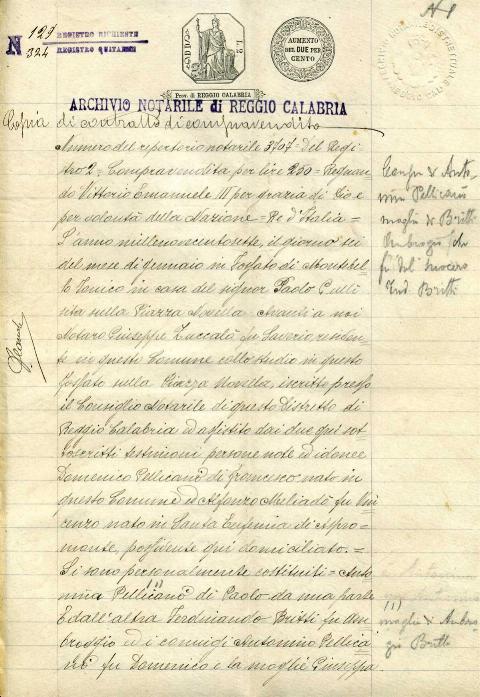 N 129 REGISTRO RICHIESTE
324 REGISTRO QUITANZE
L. 2
AUMENTO
DEL DUE PER
CENTO
N 1
Prov. di REGGIO CALABRIA
ARCHIVIO NOTARILE di REGGIO CALABRIA
Copia di contratto di compravendita
Numero del repertorio notarile 3707 = Del Regi
stro 2 = Compravendita per lire 250 = Regnan
do Vittorio Emanuele III per grazia di Dio e
per volontà della Nazione = Re d'Italia =
L'anno millenovecentosette, il giorno sei
del mese di gennaio in Fossato di Montebel
lo Jonico in casa del signor Paolo
sulla Piazza Novella Avanti a noi
Notaro Giuseppe Zuccalà fu Saverio, residen
te in questo Comune collo studio in questo
Fossato sulla Piazza Novella, iscritto presso
il Consiglio Notarile di questo Distretto di
Reggio Calabria ed assistito dai due qui sot
toscritti testimoni persone note ed idonee
Domenico Pellicanò di Francesco nato in
questo Comune ed Alfonzo Meliadò fu Vin
cenzo nato in Santa Eufemia di Aspro=
monte, possidente qui domiciliato. =
Si sono personalmente costituiti = Anto
nia Pellicanò (1) di Paolo da una parte
E dall'altra Ferdinando Britti fu Am
broggio ed i coniugi Antonino Pellica
nò fu Domenico e la moglie Giuseppa
Pellicanò
moglie di Britti
Ambrogio
del suocero
Ferd. Britti
(1)
moglie di Ambro
gio Britti